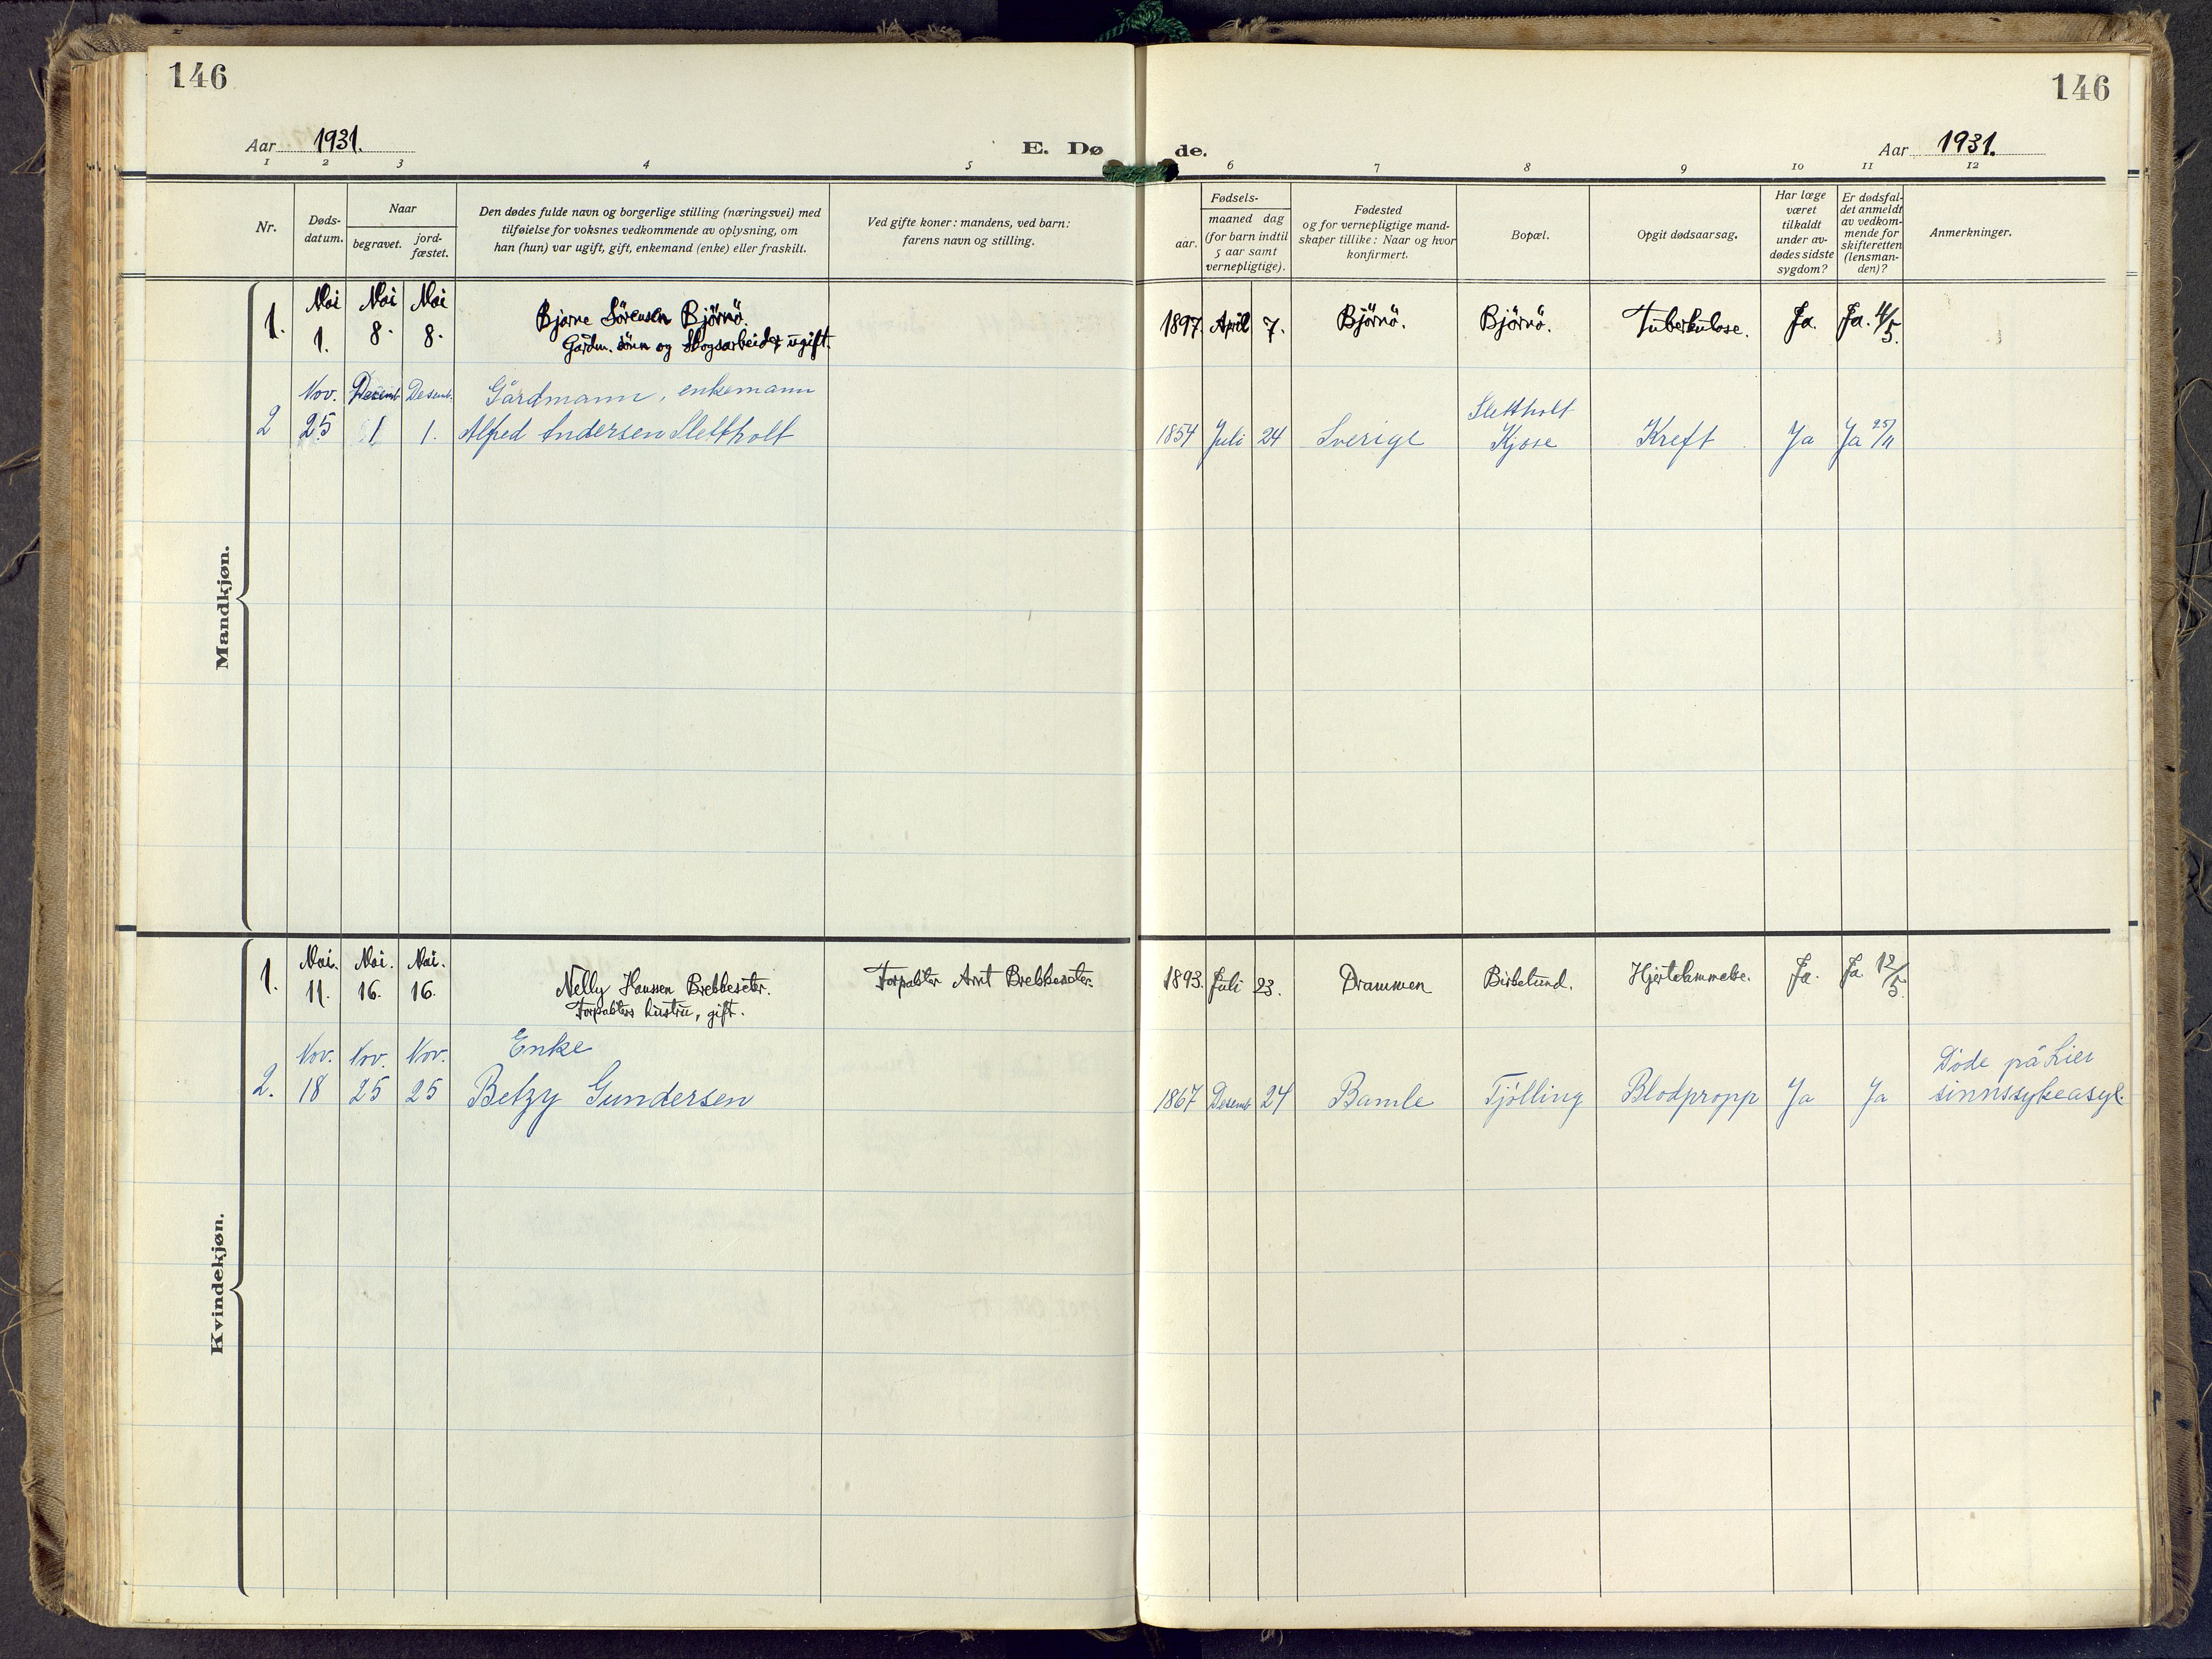 146
146
Aar 1931.
E. Dø
de.
Aar 1931.
1 2 3 4 5 6 7 8 9 10 11 12
Nr.
Døds-
datum.
Naar
begravet.
jord-
fæstet.
Den dødes fulde navn og borgerlige stilling (næringsvei) med
tilføielse for voksnes vedkommende av oplysning, om
han (hun) var ugift, gift, enkemand (enke) eller fraskilt.
Ved gifte koner: mandens, ved barn:
farens navn og stilling.
Fødsels-
aar.
maaned dag
(for barn indtil
5 aar samt
vernepligtige).
Fødested
og for vernepligtige mand-
skaper tillike: Naar og hvor
konfirmert.
Bopæl.
Opgit dødsaarsag.
Har læge
været
tilkaldt
under av-
dødes sidste
sygdom?
Er dødsfal-
det anmeldt
av vedkom-
mende for
skifteretten
(lensman-
den)?
Anmerkninger.
Mandkjøn.
1.
Mai
1.
Mai
8.
Mai
8.
Bjarne Sörensen Björnö.
Gårdm. sönn og Skogsarbeider, ugift.
1897 April 7. Björnö. Björnö. Tuberkulose. Ja. Ja. 4/5.
2
Nov.
25
Desemb.
1
Desemb.
1.
Gårdmann, enkemann
Alfred Andersen Slettholt
1854 Juli 24 Sverige
Slettholt
Kjose
Kreft Ja Ja 25/11
Kvindekjøn.
1.
Mai.
11.
Mai.
16.
Mai.
16.
Nelly Hanssen Brekkeseter.
Forpakters hustru, gift.
Forpakter Arnt Brekkeseter.
1893. Juli 23. Drammen Birkelund. Hjertelammelse. Ja. Ja 12/5.
2.
Nov.
18
Nov.
25
Nov.
25
Enke
Betzy Gundersen
1867 Desemb 24 Bamle Tjølling Blodpropp Ja Ja
Døde på Lier
sinnssykeasyl.